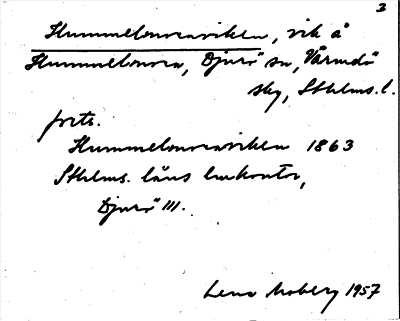 3
Hummelmoraviken, vik å
Hummelmora, Djurö sn, Värmdö
skg, Sthlms. l.
forts.
Hummelmoraviken 1863
Sthlms. läns lmkontor,
Djurö III.
Lena Moberg 1957